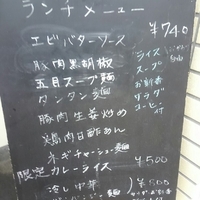 ランチメニュー
¥740
エビバターソース
豚肉黒胡椒
五目スープ麺
タンタン麺
豚肉生姜炒め
鶏肉甘酢あん
ネギチャーシュー麺
ライス
スープ
お新香
サラダ
コーヒー
付
限定 カレーライス ¥500
冷し中華